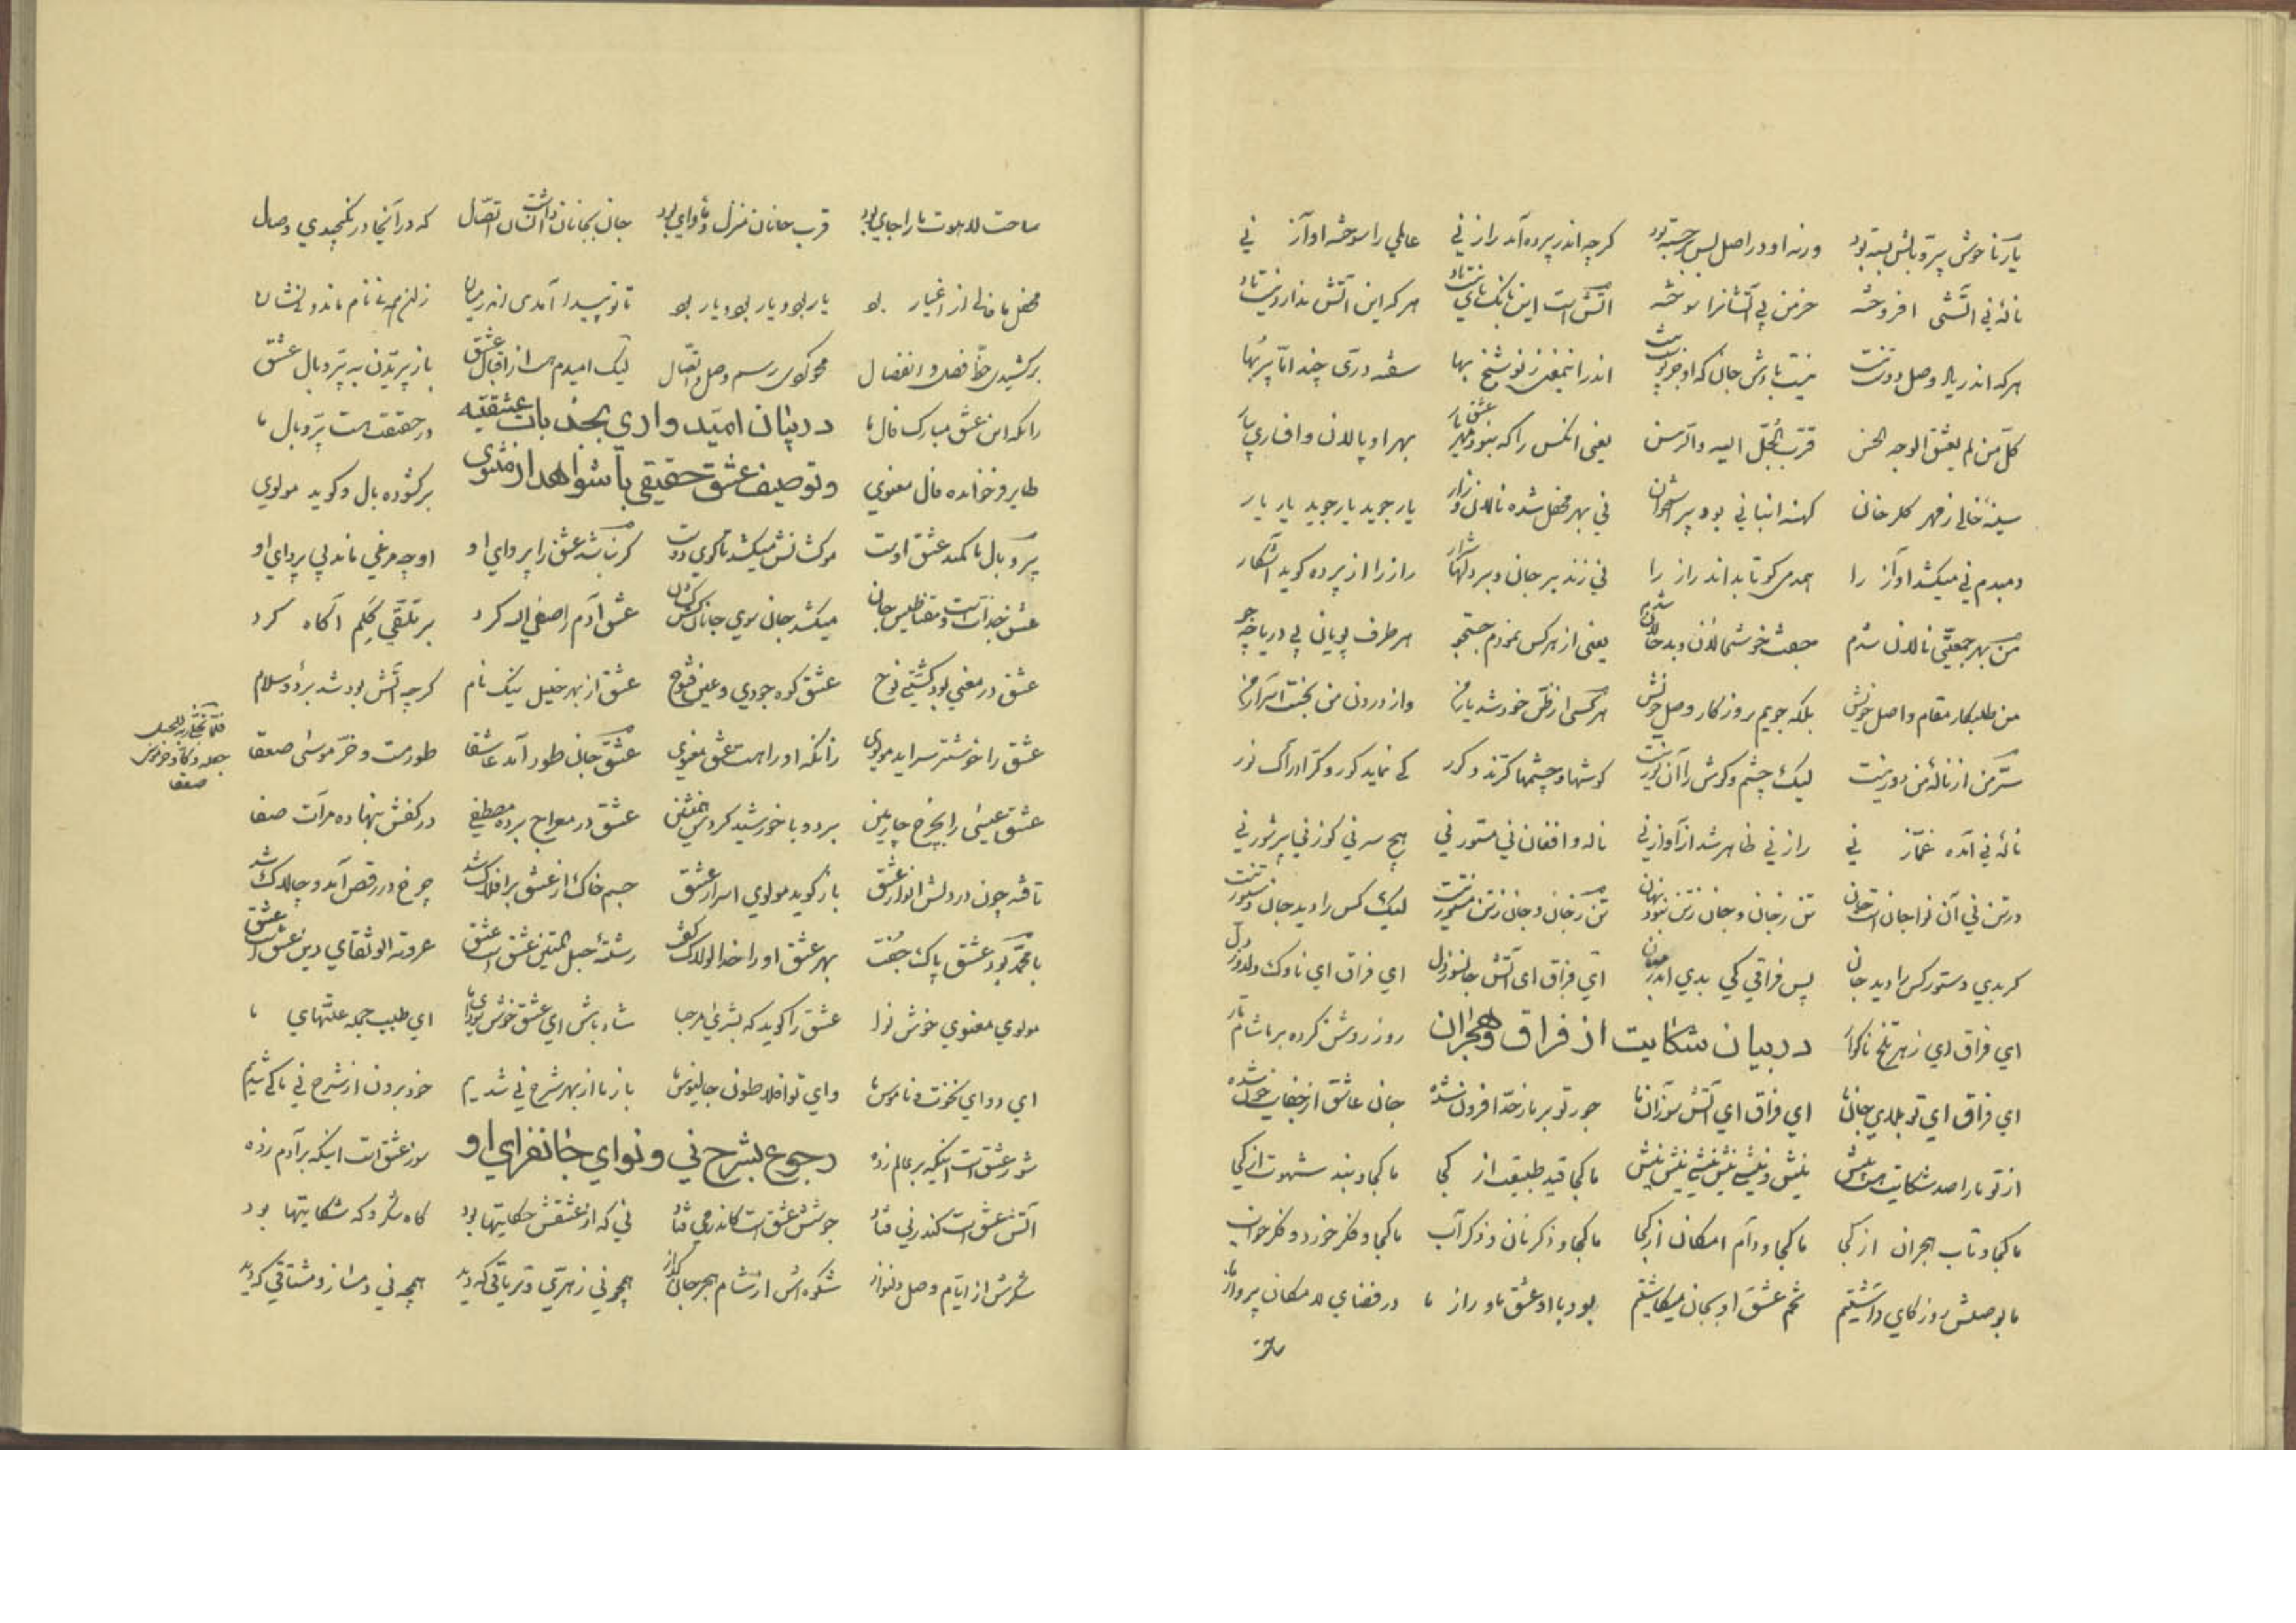 یار ناخوش پر و بالش بسته بود ورنه او در اصل بس برجسته بود کرچه اندر پرده آمد راز نی عالمی را سوخته آواز نی
نالهٔ نی آتشی افروخته خرمن بی آتشانرا سوخته آتش است این بانک نای و نیست باد هر که این آتش ندارد نیست باد
هر که اندر یاد وصل دوست نیست نیست بادش جان که او جز پوست نیست اندر این معنی ز نو شیخ بها سفته درّی چند امّا پر بها
کلّ من لم یعشق الوجه الحسن قرّب الجلّ الیه والرّسن یعنی آنکس را که نبود عشق یار بهر او پالان و افساری بیار
سینهٔ خالی ز مهر کلرخان کهنه انبانی بود پر استخوان نی بهر محفل شده نالان و زار یار جوید یار جوید یار یار
دمبدم نی میکشد آواز را همدمی کو تا بداند راز را نی زند بر جان و بر دلها شرار راز را از پرده کوید آشکار
من بهر جمعیّتی نالان شدم جفت خوشحالان و بدحالان شدم یعنی از هر کس نمودم جستجو هر طرف پویان پی دریا چو جو
من طلبکار مقام واصل خویش بلکه جویم روزکار وصل خویش هر کسی از ظنّ خود شد یار من واز درون من نجست اسرار من
سرّ من از نالهٔ من دور نیست لیک چشم و کوش را آن نور نیست کوشها و چشمها کرند و کور کی نماید کور و کر ادراک نور
نالهٔ نی آمده غمّاز نی راز نی ظاهر شد از آواز نی ناله و افغان نی مستور نی هیچ سر نی کوز نی پر شور نی
در تن نی آن نوا جان است جان تن ز جان و جان ز تن نبود نهان تن ز جان و جان ز تن مستور نیست لیک کس را دید جان دستور نیست
کر بدی دستور کس را دید جان پس فراقی کی بدی اندر میان ای فراق ای آتش جانسوز دل ای فراق ای ناوک دلدوز دل
ای فراق ای زهر تلخ ناکوار در بیان شکایت از فراق و هجران روز روشن کرده بر ما شام تار
ای فراق ای تو بلای جان ما ای فراق ای آتش سوزان ما جور تو بر ما ز حدّ افزون شده جان عاشق از جفایت خون شده
از تو ما را صد شکایت هست بیش نیش و نیشی نیش نیشی نیش نیش ما کجا قید طبیعت از کجا ما کجا و بند شهوت از کجا
ما کجا و تاب هجران از کجا ما کجا و دام امکان از کجا ما کجا و ذکر نان و ذکر آب ما کجا و فکر خورد و فکر خواب
ما بوصلش روزکاری داشتیم تخم عشق او بجان میکاشتیم بود با او عشق ما و راز ما در فضای لامکان پرواز ما
ساحت لاهوت ما را جای بود قرب جانان منزل و مأوای بود جان بجانان داشت آنسان اتّصال که در آنجا در نکنجیدی وصال
محفل ما خالی از اغیار بود یار بود و یار بود و یار بود تا تو پیدا آمدی اندر میان
برکشیدی خطّ فصل و انفصال محو کردی رسم وصل و اتّصال لیک امیدم هست از اقبال عشق باز پرّیدن به پرّ و بال عشق
زانکه این عشق مبارک فال ما در بیان امیّدواری بجذبات عشقیّه در حقیقت هست پرّ و بال ما
طایر فرخنده فال معنوی و توصیف عشق حقیقی با شواهد از مثنوی برکشوده بال و کوید مولوی
پرّ و بال ما کمند عشق اوست موکشانش میکشد تا کوی دوست کر نباشد عشق را پروای او او چو مرغی ماند بی پروای او
عشق جذّابست و مقناطیس جان میکشد جان سوی جانان کش کشان عشق آدم را صفیّ الله کرد بر تلقّی کلم آکاه کرد
عشق در معنی بود کشتی نوح عشق کوه جودی و عین فتوح عشق از بهر خلیل نیک نام کرچه آتش بود شد برد و سلام
عشق را خوشتر سراید مولوی زانکه او را هست عشق معنوی عشق جان طور آمد عاشقا طور مست و خرّ موسی صعقا
فلمّا تجلّی ربّه للجبل جعله دکّا و خرّ موسی صعقا
عشق عیسی را بچرخ چارمین برد و با خورشید کردش همنشین عشق در معراج برده مصطفی در کفش بنهاده مرآت صفا
تافته چون در دلش انوار عشق باز کوید مولوی اسرار عشق جسم خاک از عشق بر افلاک شد چرخ در رقص آمد و چالاک شد
با محمّد بود عشق پاک جفت بهر عشق او را خدا لولاک کفت رشتهٔ حبل المتین عشق است عشق عروة الوثقای دین عشق است عشق
مولوی معنوی خوش نوا عشق را کوید که بشری مرحبا شاد باش ای عشق خوش سودای ما ای طبیب جمله علّتهای ما
ای دوای نخوت و ناموس ما وای تو افلاطون و جالینوس ما باز ما از بهر شرح نی شدیم خود برون از شرح نی ما کی شدیم
شور عشق است اینکه بر عالم زده رجوع بشرح نی و نوای جانفزای او سوز عشق است اینکه بر آدم زده
آتش عشق است کندر نی فتاد جوشش عشق است کاندر می فتاد نی که از عشقش حکایتها بود کاه شکر و که شکایتها بود
شکرش از ایّام وصل دلنواز شکوه‌اش از شام هجر جان کداز همچو نی زهری و تریاقی که دید همچو نی دمساز و مشتاقی که دید